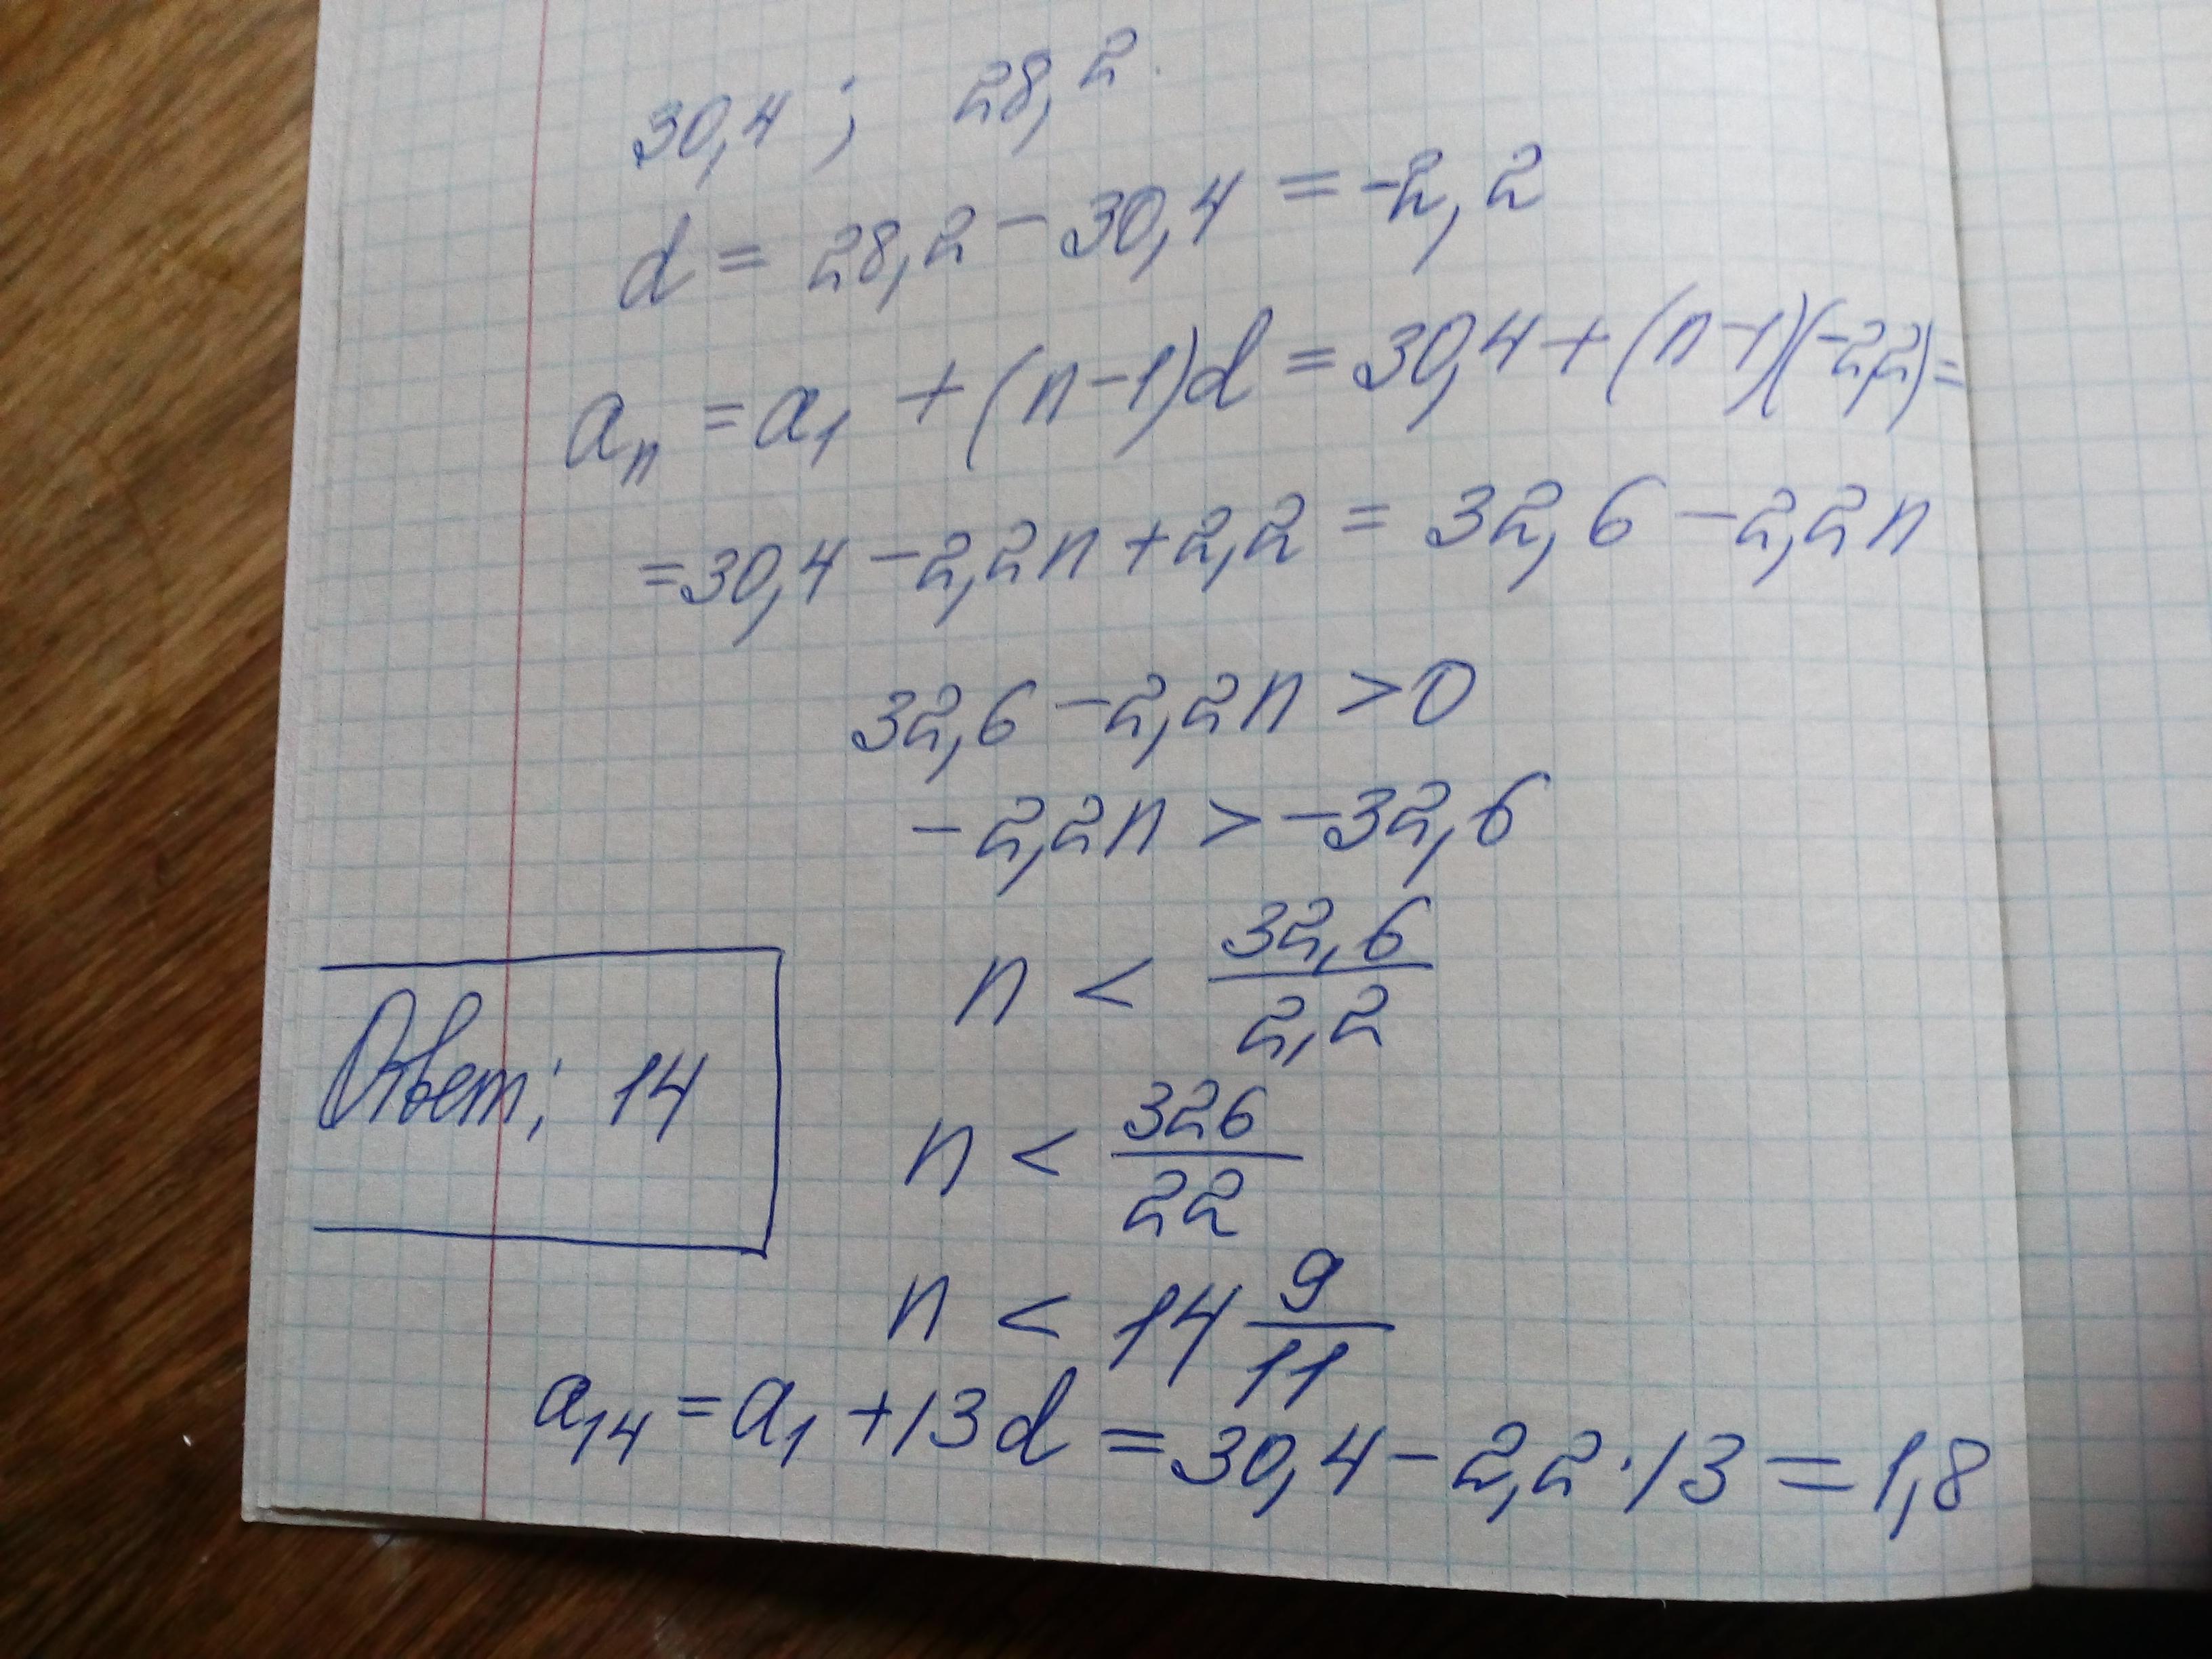 30,4 ; 28,2
d = 28,2 - 30,4 = -2,2
aₙ = a₁ + (n-1)d = 30,4 + (n-1)(-2,2) =
= 30,4 - 2,2n + 2,2 = 32,6 - 2,2n
32,6 - 2,2n > 0
- 2,2n > -32,6
n < 32,6/2,2
n < 326/22
n < 14 9/11
Ответ; 14
a₁₄ = a₁ + 13d = 30,4 - 2,2 · 13 = 1,8